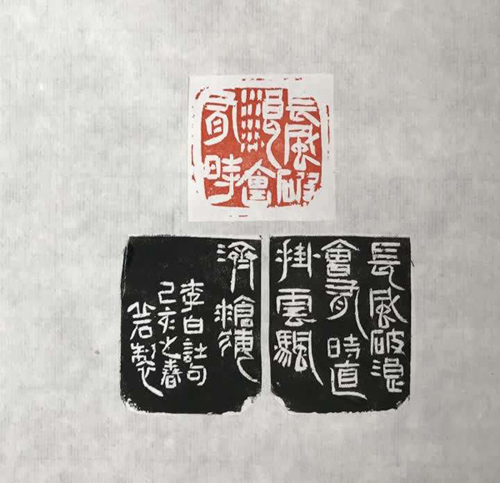 長風破
浪會
有時
長風破浪
會有時直
掛雲颿
濟滄海
李白詩句
己亥之春
岩製